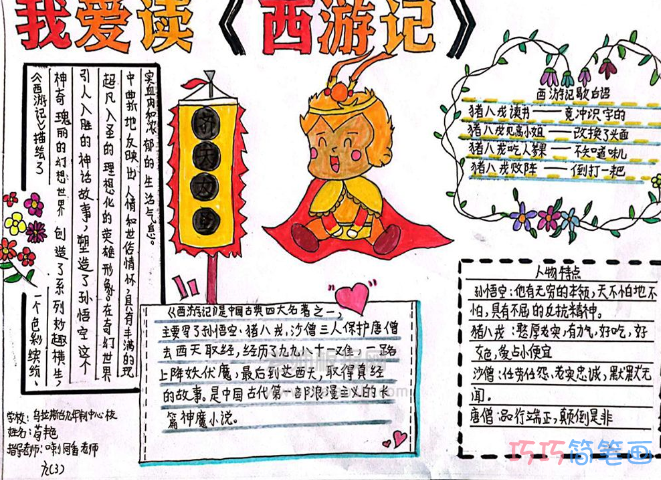 我爱读《西游记》
《西游记》描绘了
一个色彩缤纷、
神奇瑰丽的幻想世界
创造了系列妙趣横生、
引人入胜的神话故事，塑造了孙悟空这个
超凡入圣的理想化的英雄形象。在奇幻世界
中曲折地反映出人情和世俗情怀，具有丰满的现
实血肉和浓郁的生活气息。
西游记歇后语
猪八戒读书——竟冲识字的
猪八戒见高小姐——改换了头面
猪八戒吃人参果——不知啥味儿
猪八戒败阵——倒打一耙
《西游记》是中国古典四大名著之一，
主要写了孙悟空、猪八戒，沙僧三人保护唐僧
去西天取经，经历九九八十一难，一路
上降妖伏魔，最后到达西天，取得真经
的故事，是中国古代第一部浪漫主义的长
篇神魔小说。
人物特点
孙悟空：他有无穷的本领，天不怕地不
怕，具有不屈的反抗精神。
猪八戒：憨厚老实，有力气，好吃，好
色，爱占小便宜
沙僧：任劳任怨，老实忠诚，默默无
闻。
唐僧：品行端正，颠倒是非
学校：
九年制中心校
姓名：
指导老师：
老师
六(3)
巧巧简笔画